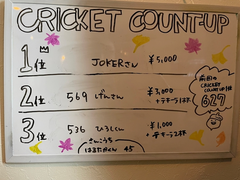 CRICKET COUNT-UP
1位 JOKERさん ¥5,000
2位 569 げんさん ¥3,000
+テキーラ2杯
3位 536 ひろしくん ¥1,000
さんこうち
45
前回の
CRICKET
COUNT-UP
627